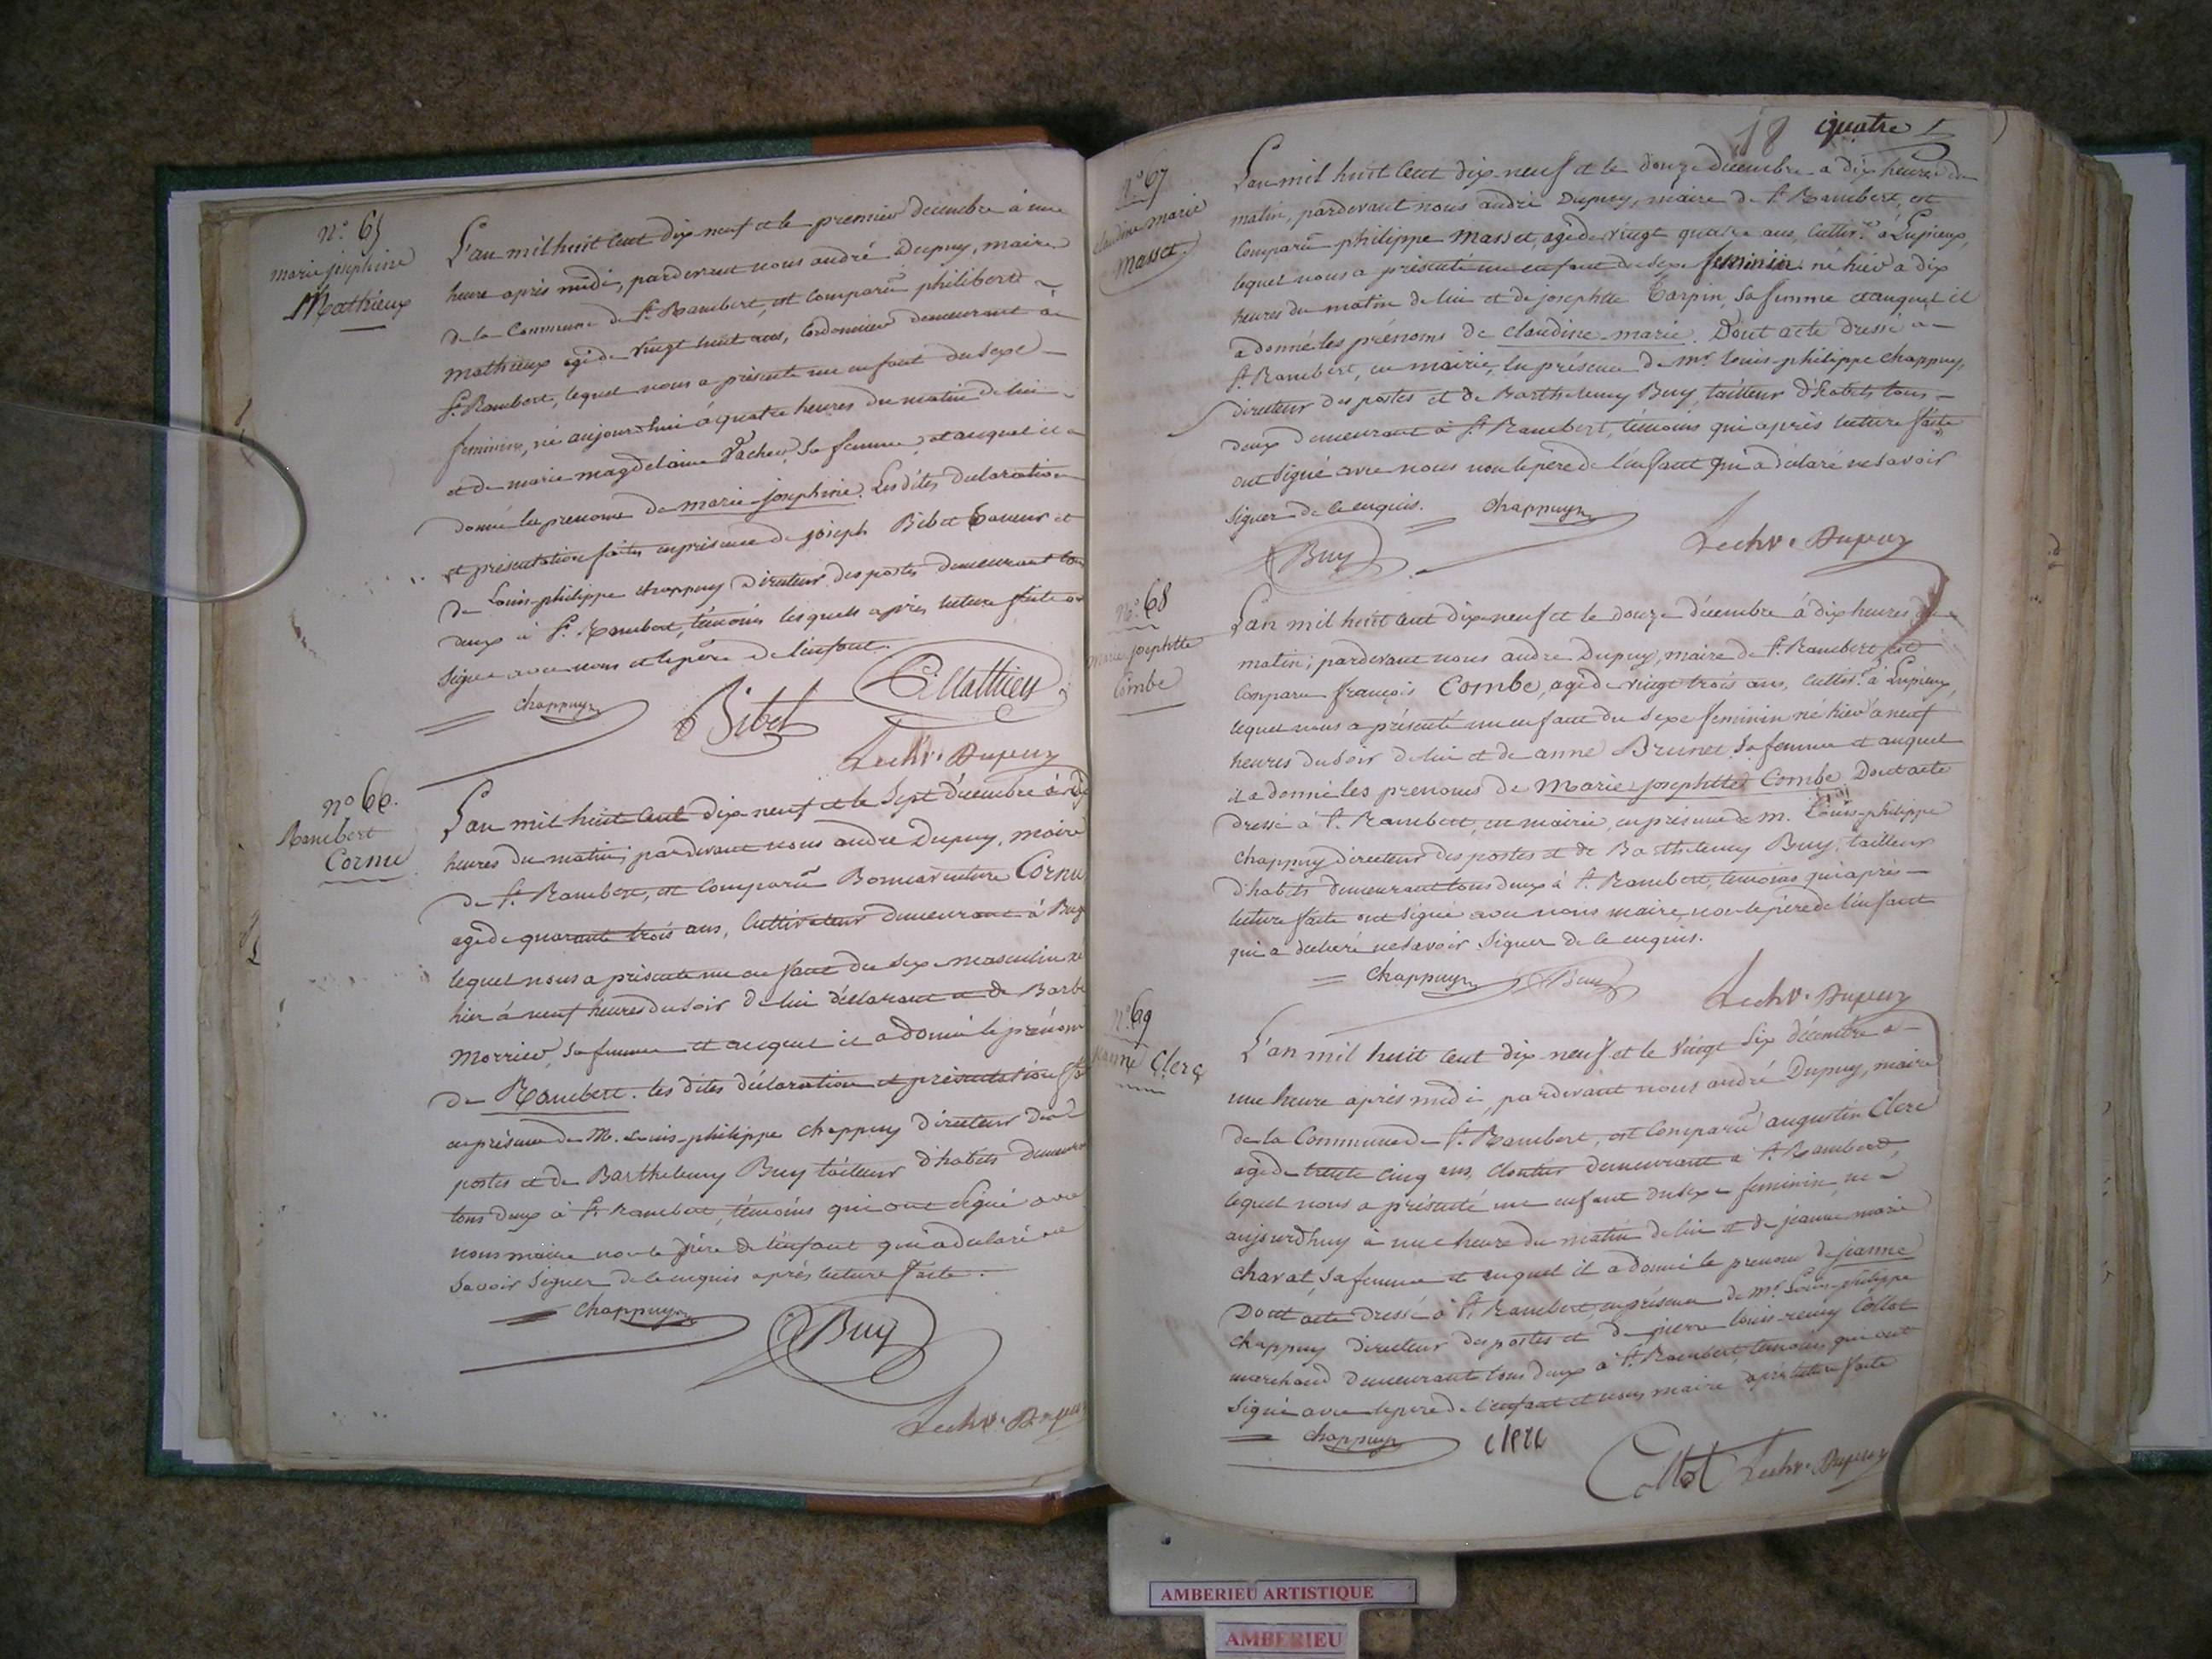 N.º 65
marie josephine
Mathieux
L'an mil huit cent dix neuf et le premier decembre à une
heure après midi, pardevant nous andré Dupuy, maire
de la Commune de St. Rambert, est comparu philibert
Mathieux agé de vingt huit ans, Cordonnier demeurant à
St. Rambert, lequel nous a présenté un enfant du sexe
feminin, né aujourd'hui à quatre heures du matin de lui
et de marie magdelaine Vacher, sa femme, et auquel il a
donné les prenoms de marie-josephine. Les dites declaration
et présentation faites en présence de joseph Bibet et
de Louis-philippe chappuy Directeur des postes demeurant
deux à St. Rambert, témoins lesquels après lecture faite ont
signé avec nous et le père de l'enfant.
chappuy
Bibet
Mathieu
Lechv. Dupuy
N.º 66.
Rambert
Cornu
L'an mil huit cent dix neuf et le sept décembre à
heures du matin, pardevant nous andre Dupuy, maire
de St. Rambert, est comparu Bonnaventure Cornu
agé de quarante trois ans, Cultivateur demeurant à
lequel nous a présenté un enfant du sexe masculin né
hier à neuf heures du soir de lui déclarant et de Barbe
Morrier, sa femme et auquel il a donné le prénom
de Rambert. les dites déclaration et présentation
en présence de M. Louis-philippe chappuy Directeur des
postes et de Barthelemy Buy tailleur d'habits
tous deux à St. Rambert, témoins qui ont signé avec
nous maire non le père de l'enfant qui a declaré ne
savoir signer de ce enquis après lecture faite.
chappuy
Buy
Lechv. Dupuy
18 quatre
N.º 67
claudine marie
Masset.
L'an mil huit cent dix-neuf et le douze decembre à dix heures du
matin, pardevant nous andré Dupuy, maire de St. Rambert, est
comparu philippe Masset, agé de vingt quatre ans, cultivr. à Lupieux,
lequel nous a présenté un enfant du sexe feminin né hier à dix
heures du matin de lui et de josephtte Carpin, sa femme et auquel il
a donné les prénoms de claudine-marie. Dont acte dressé à
St. Rambert, en mairie, en présence de mr. louis-philippe chappuy,
directeur des postes et de Barthelemy Buy, tailleur d'habits tous
deux demeurant à St. Rambert, témoins qui après lecture faite
ont signé avec nous non le père de l'enfant qui a déclaré ne savoir
signer de ce enquis.
chappuy
Buy
Lechv. Dupuy
N.º 68
marie josephtte
Combe
L'an mil huit cent dix-neuf et le douze décembre à dix heures du
matin; pardevant nous andre Dupuy, maire de St. Rambert est
comparu françois Combe, agé de vingt trois ans, cultivr. à Lupieux,
lequel nous a présenté un enfant du sexe feminin né hier à neuf
heures du soir de lui et de anne Brunet sa femme et auquel
il a donné les prenoms de Marie-josephtte Combe Dont acte
dressé à St. Rambert, en mairie, en présence de m. Louis-philippe
chappuy directeur des postes et de Barthelemy Buy, tailleur
d'habits demeurant tous deux à St. Rambert, témoins qui après
lecture faite ont signé avec nous maire, non le père de l'enfant
qui a declaré ne savoir signer de ce enquis.
chappuy
Buy
Lechv. Dupuy
N.º 69
Jeanne Clerc
L'an mil huit cent dix neuf et le vingt six décembre à
une heure après midi, pardevant nous andré Dupuy, maire
de la Commune de St. Rambert, est comparu augustin Clerc
agé de trente cinq ans, cloutier demeurant à St. Rambert,
lequel nous a présenté un enfant du sexe feminin né
aujourdhuy à une heure du matin de lui et de jeanne marie
Chavat, sa femme et auquel il a donné le prenom de jeanne
Dont acte dressé à St. Rambert, en présence de mr. Louis-philippe
chappuy directeur des postes et de pierre louis-remy Collot
marchand demeurant tous deux à St. Rambert, témoins qui ont
signé avec le père de l'enfant et nous maire après lecture faite
chappuy
clerc
Collot
Lechv. Dupuy
AMBERIEU ARTISTIQUE
AMBERIEU